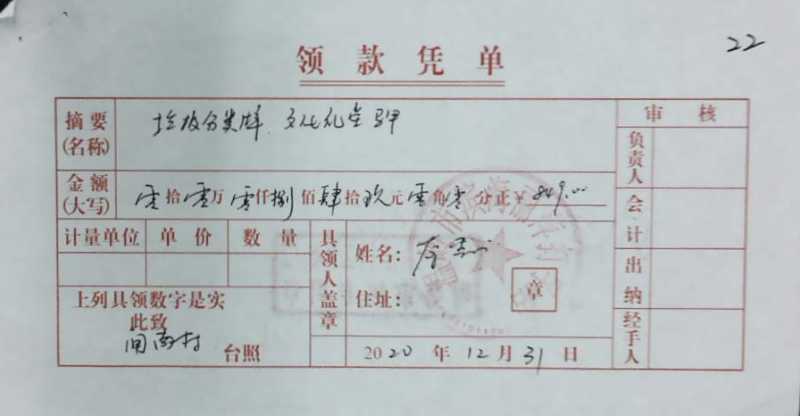 22
领款凭单
摘要
(名称)
垃圾分类牌、文化礼堂
审核
负责人
会计
出纳
经手人
金额
(大写)
零拾零万零仟捌佰肆拾玖元零角零分正¥849.00
计量单位 单价 数量
具领人盖章
姓名:
住址:
章
上列具领数字是实
此致
台照
2020年12月31日